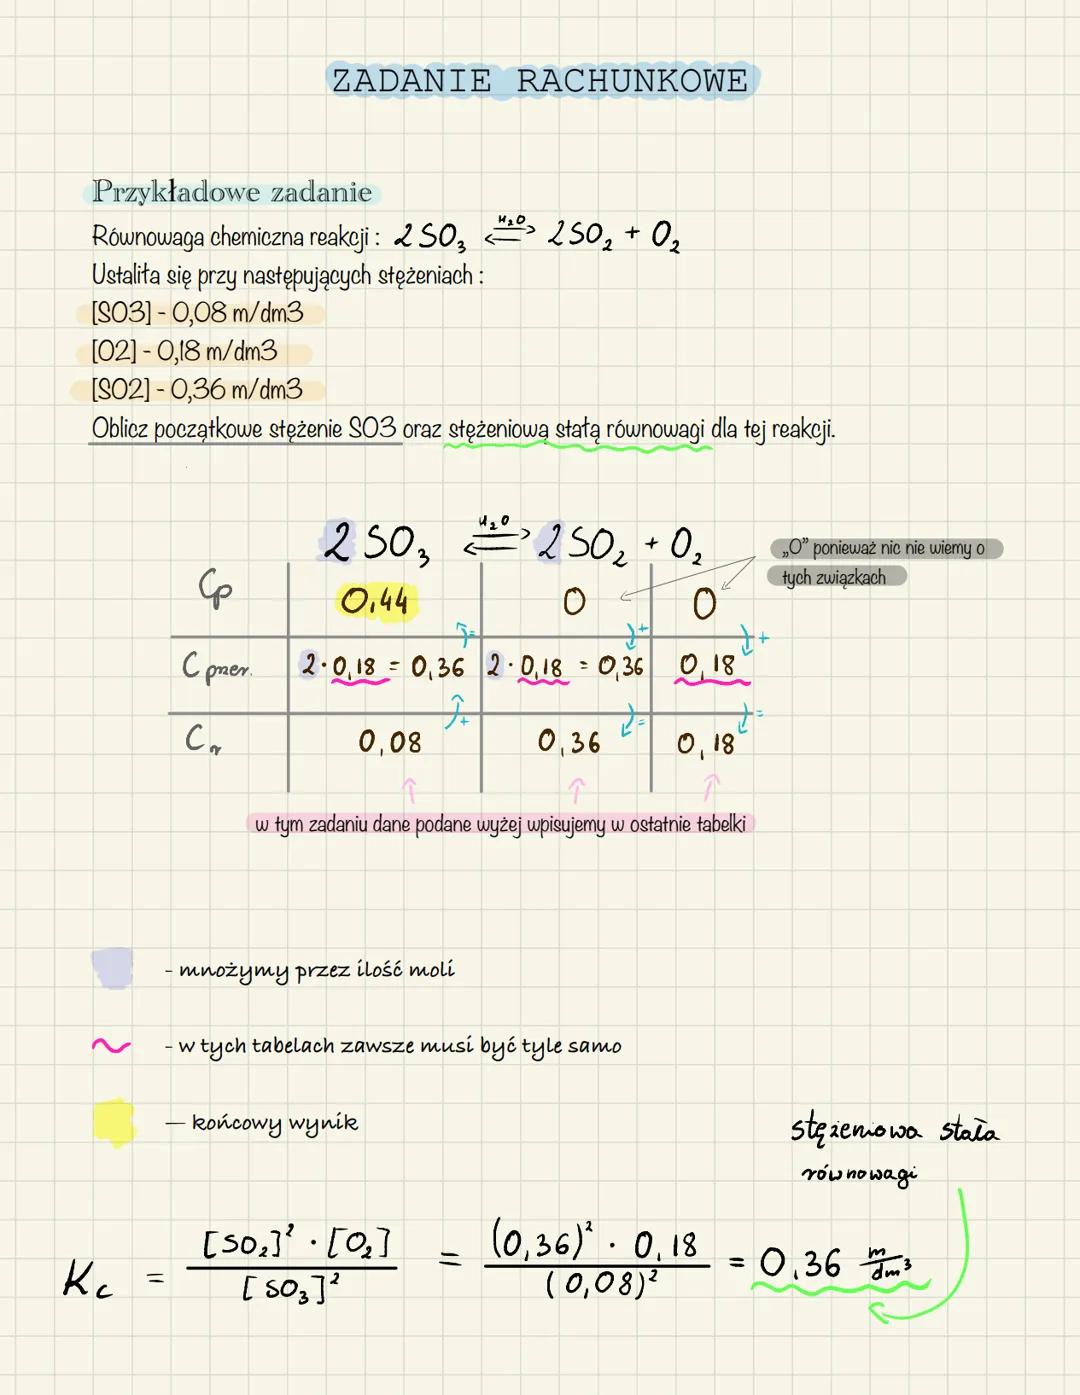 ZADANIE RACHUNKOWE
Przykładowe zadanie
Równowaga chemiczna reakcji : 2 SO₃ ⇌ H₂O 2 SO₂ + O₂
Ustaliła się przy następujących stężeniach :
[SO3] - 0,08 m/dm3
[O2] - 0,18 m/dm3
[SO2] - 0,36 m/dm3
Oblicz początkowe stężenie SO3 oraz stężeniową stałą równowagi dla tej reakcji.
2 SO₃ ⇌ H₂O 2 SO₂ + O₂
„O” ponieważ nic nie wiemy o
tych związkach
Cp 0,44 0 0
= + +
C przer. 2 · 0,18 = 0,36 2 · 0,18 = 0,36 0,18
+ = =
Cr 0,08 0,36 0,18
w tym zadaniu dane podane wyżej wpisujemy w ostatnie tabelki
- mnożymy przez ilość moli
- w tych tabelach zawsze musi być tyle samo
— końcowy wynik
stężeniowa stała
równowagi
Kc = [SO₂]² · [O₂] / [SO₃]² = (0,36)² · 0,18 / (0,08)² = 0,36 m/dm³